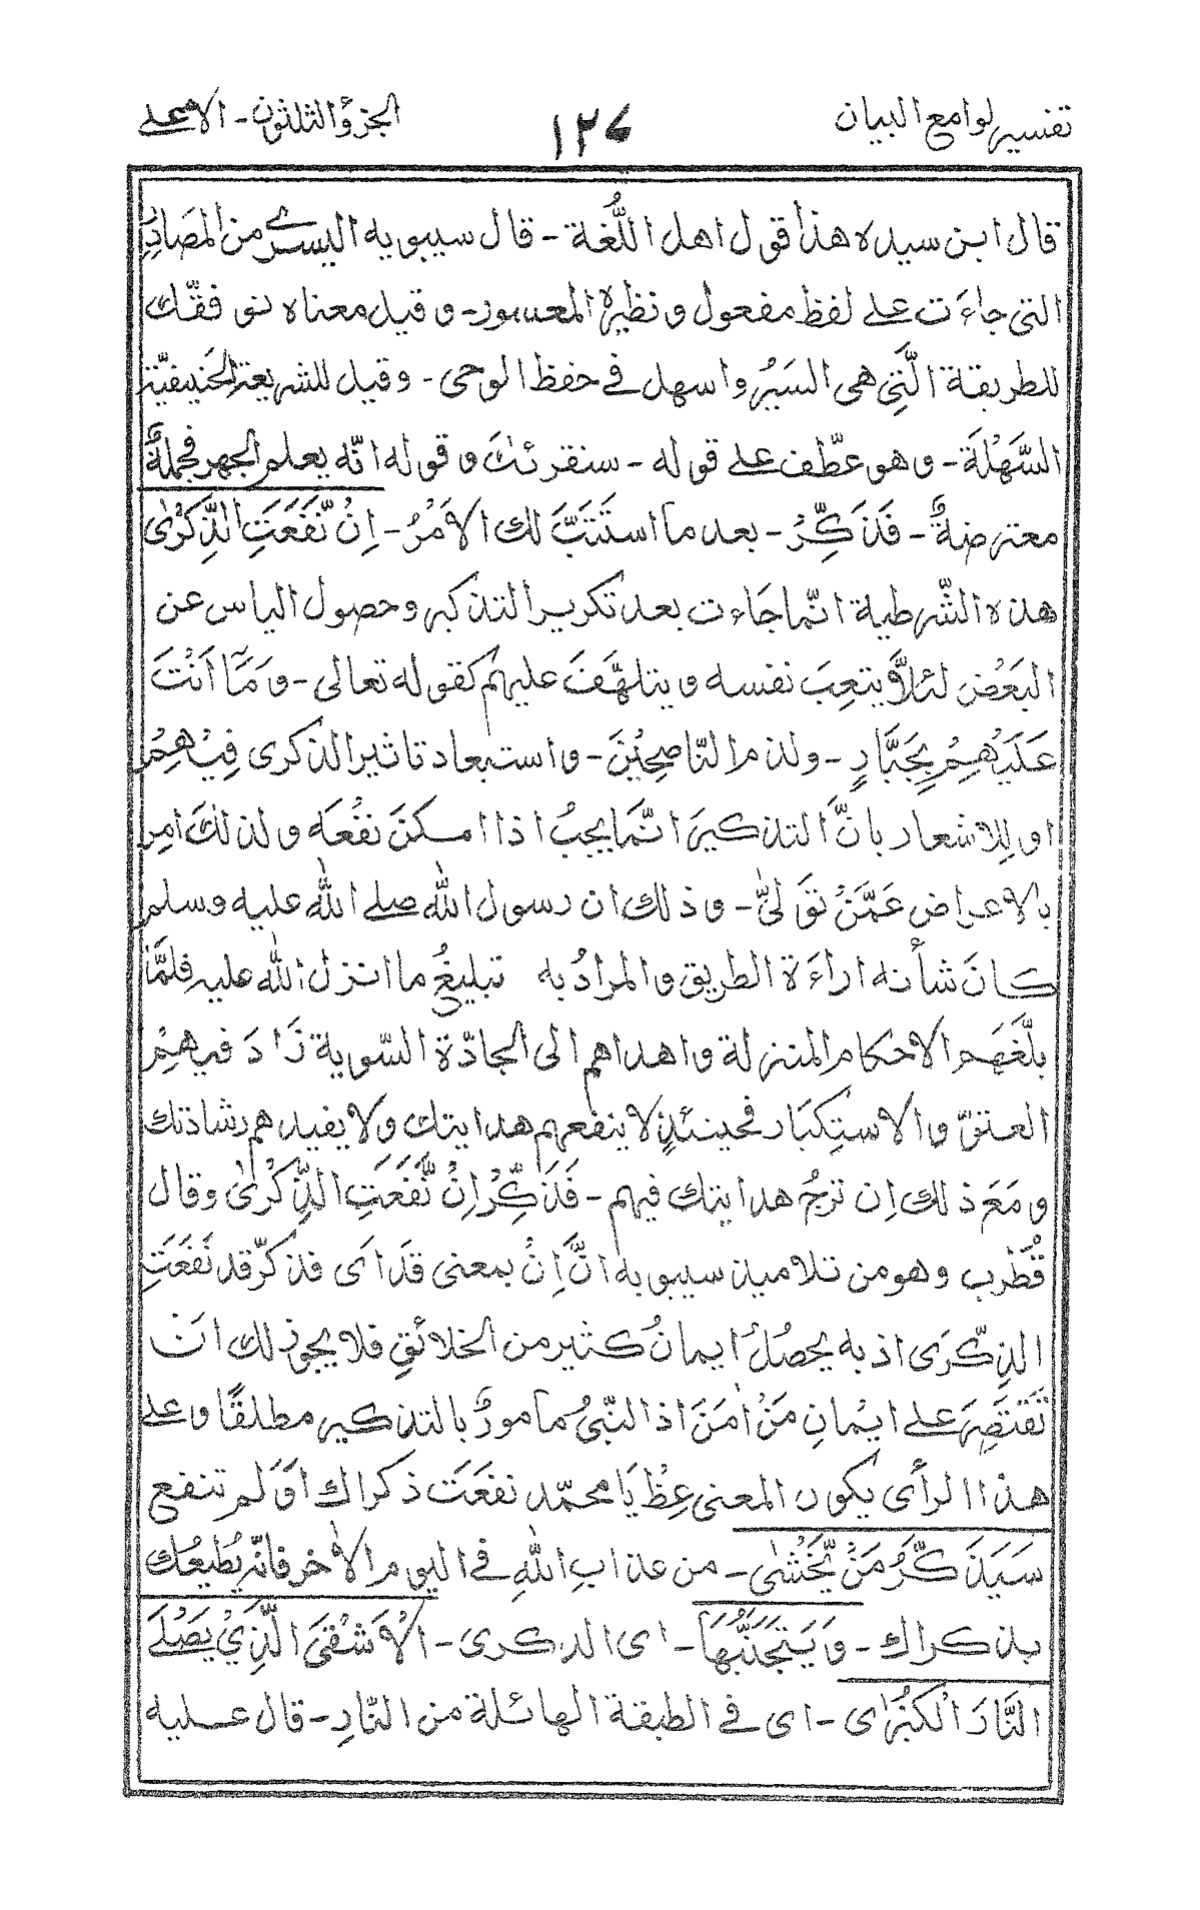 تفسير لوامع البيان ١٢٧ الجزؤ الثلثون - الاعلى
قال ابن سيده هذا قول اهل اللُّغة - قال سيبويه اليسرى من المصَادِرِ
التى جاءَت على لفظ مفعول ونظيره المعسور - وقيل معناه نوفقّك
للطريقة الَّتِى هى السَيرُ واسهل فى حفظ الوحى - وقيل للشريعة الحَنيفيّة
السَّهْلَة - وهو عطّف على قوله - سنقرئكَ وقوله انّه يعلم الجهر فجملةٌ
معترضةٌ - فَذَكِّرْ - بعد ما استَتَبَّ لك الاَمْرُ - اِنْ نَّفَعَتِ الذِّكْرٰى
هذه الشّرطية انّما جَاءت بعد تكرير التذكير وحصول الياس عن
البَعْض لئلاَّ يتعِبَ نفسه ويتلهَّفَ عليهم كقوله تعالى - وَمَآ اَنْتَ
عَلَيْهِمْ بِجَبَّارٍ - ولذم النّاصحِيْنَ - واستبعاد تاثير الذكرى فِيْهِمْ
او لِلاشعار بانَّ التذكيرَ انّمَا يجبُ اذا امكنَ نفْعَه ولذلكَ امِر
بالاعراض عَمَّنْ تَوَلىّٰ - وذلك ان رسول الله صلى الله عليه وسلم
كانَ شأنه اراءَة الطريق والمرادُ به تبليغُ ما انزل الله عليه فلمَّا
بلَّغَهم الاحكام المنزلة واهداهم الى الجادّة السّوية زَادَ فيهِمْ
العتوّ والاستِكبَار فحينئذٍ لا ينفعهم هدايتك ولا يفيدهم رشادتك
ومَعَ ذلك اِن ترجُ هدايتك فيهم - فَذَكِّرْ اِنْ نَّفَعَتِ الذِّكْرٰى وقال
قُطْرب وهو من تلاميذ سيبويه انَّ اِنْ بمعنى قَد اَى فذكرّ قد نَفَعَتِ
الذِكّرَى اذ به يحصُلُ ايمانُ كثير من الخلائقِ فلا يجوز لك ان
تَقْتَصِرَ على ايْمانِ مَنْ اٰمَنَ اذ النبّىُ مامورٌ بالتذكير مطلقًا وعلى
هذا الرأى يكون المعنى عِظْ يَا محمّد نفعَت ذكراك اَوْ لم تنفع
سَيَذَكَّرُ مَنْ يَّخْشٰى - من عذابِ اللهِ فى اليوم الاٰخر فانّه يُطيعُك
بذكراك - وَيَتَجَنَّبُهَا - اى الذكرى - الْاَشْقَى الَّذِيْ يَصْلَى
النَّارَ الْكُبْرٰى - اى فى الطبقة الهائلة من النّارِ - قال عليه